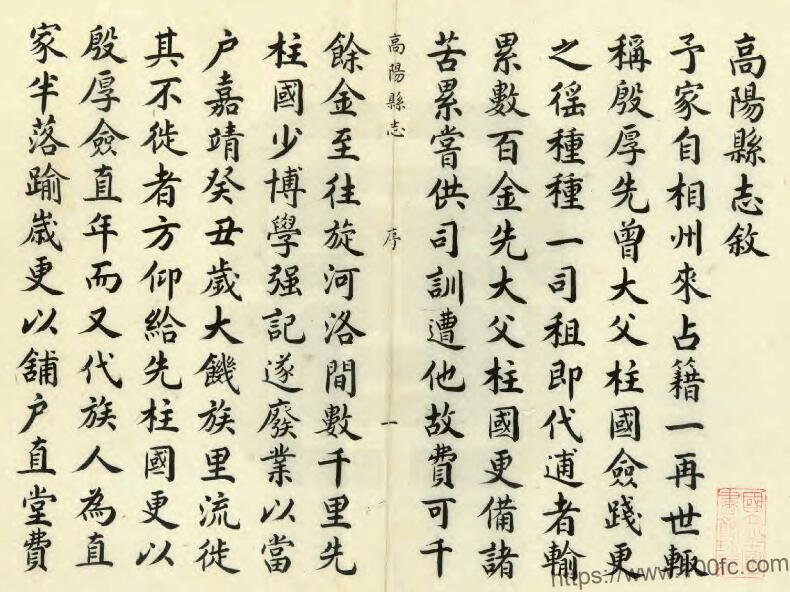 高陽縣志敘
予家自相州來占籍一再世輙
稱殷厚先曾大父柱國僉踐更
之徭種種一司租即代逋者輸
累數百金先大父柱國更備諸
苦累嘗供司訓遭他故費可千
高陽縣志 序 一
餘金至往旋河洛間數千里先
柱國少博學强記遂廢業以當
户嘉靖癸丑歲大饑族里流徙
其不徙者方仰給先柱國更以
殷厚僉直年而又代族人為直
家半落踰歲更以舖户直堂費
https://www.700fc.com